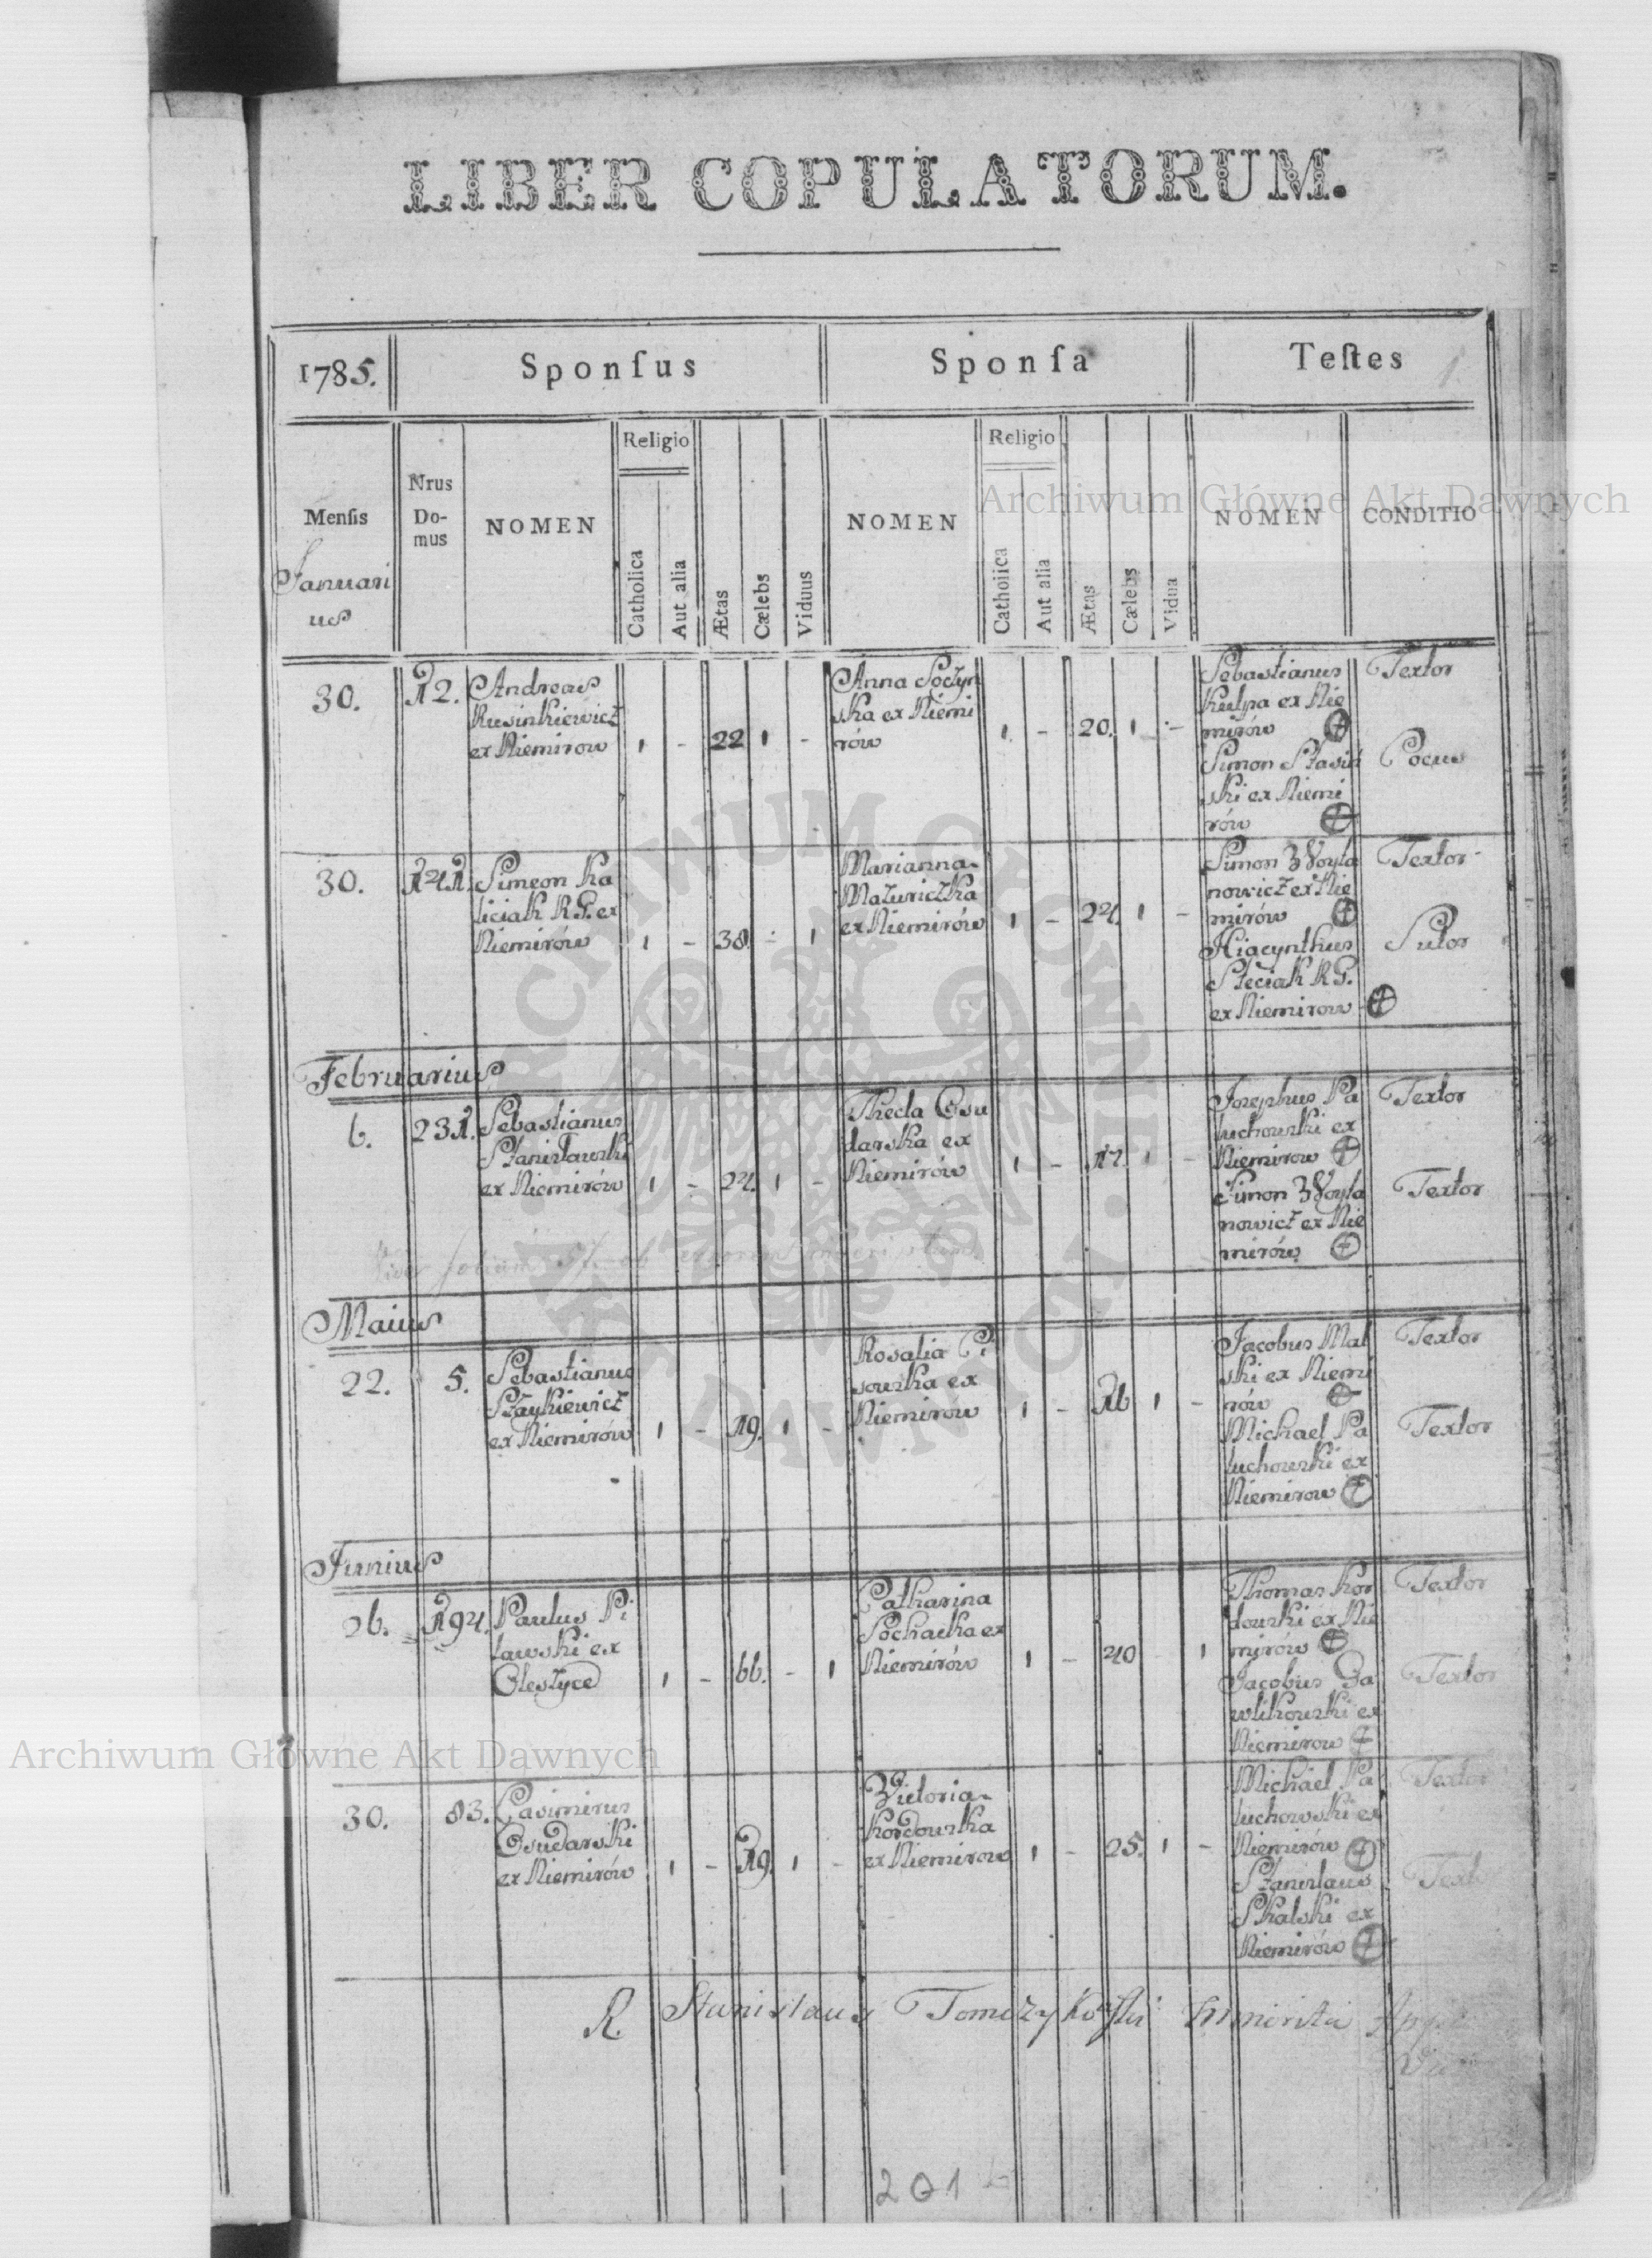 LIBER COPULATORUM.
1785.
Sponſus
Sponſa
Teſtes
Menſis
Januari
us
Nrus
Do-
mus
NOMEN
Religio
Catholica
Aut alia
Ætas
Cælebs
Viduus
NOMEN
Religio
Catholica
Aut alia
Ætas
Cælebs
Vidua
NOMEN
CONDITIO
30.
12.
Andreas
Rusinkiewicz
ex Niemirow
1 - 22 1 -
Anna Soczyn
ska ex Niemi
rów
1 - 20. 1 -
Sebastianus
Kulpa ex Nie
mirów
Textor
Simon Stasiń
ski ex Niemi
rów
30.
141.
Simeon Ka
liciak R.G. ex
Niemirów
1 - 38. - 1
Marianna
ex Niemirów
1 - 24. 1 -
Simon Woyta
nowicz ex Nie
mirów
Textor
Hiacynthus
Steciak R.G.
ex Niemirow
Sutor
Februarius
6.
231.
Sebastianus
Stanisławski
ex Niemirów
1 - 24. 1 -
Thecla Osu
darska ex
Niemirów
1 - 17. 1 -
Josephus Pa
luchowski ex
Niemirow
Textor
Simon Woyta
nowicz ex Nie
mirów
Textor
Maius
22.
5.
Sebastianus
Staykiewicz
ex Niemirów
1 - 19. 1 -
Rosalia Pi
sowska ex
Niemirów
1 - 16 1 -
Jacobus Mal
ski ex Niemi
rów
Textor
Michael Pa
luchowski ex
Niemirow
Textor
Junius
26.
194.
Paulus Pi
ławski ex
Oleszyce
1 - 66. - 1
Catharina
Sochacka ex
Niemirów
1 - 40 1
Thomas Kor
dowski ex Nie
mirów
Textor
Jacobus Ga
wlikowski ex
Niemirow
Textor
30.
83.
Casimirus
Osudarski
ex Niemirów
1 - 19. 1 -
Victoria
Kordowska
ex Niemirow
1 - 25. 1 -
Michael Pa
luchowski ex
Niemirów
Textor
Stanislaus
Skalski ex
Niemirów
R Stanislaus
201
Archiwum Główne Akt Dawnych
Archiwum Główne Akt Dawnych
ARCHIWUM GŁÓWNE
AKT DAWNYCH